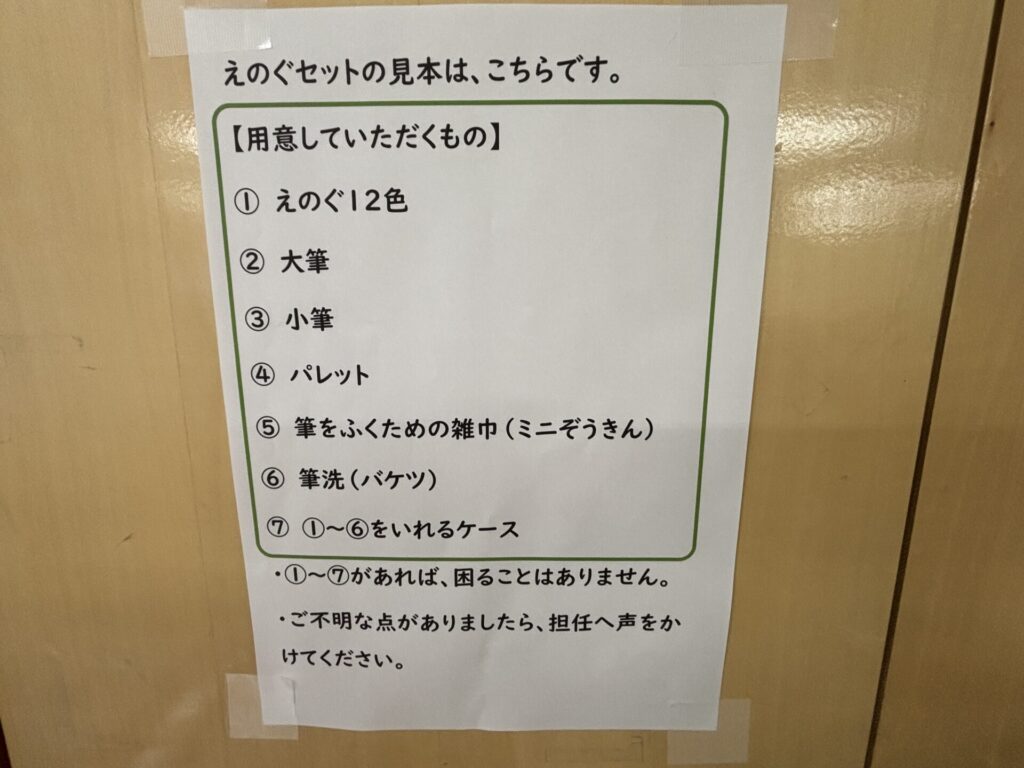 えのぐセットの見本は、こちらです。
【用意していただくもの】
① えのぐ12色
② 大筆
③ 小筆
④ パレット
⑤ 筆をふくための雑巾(ミニぞうきん)
⑥ 筆洗(バケツ)
⑦ ①～⑥をいれるケース
・①～⑦があれば、困ることはありません。
・ご不明な点がありましたら、担任へ声をか
けてください。